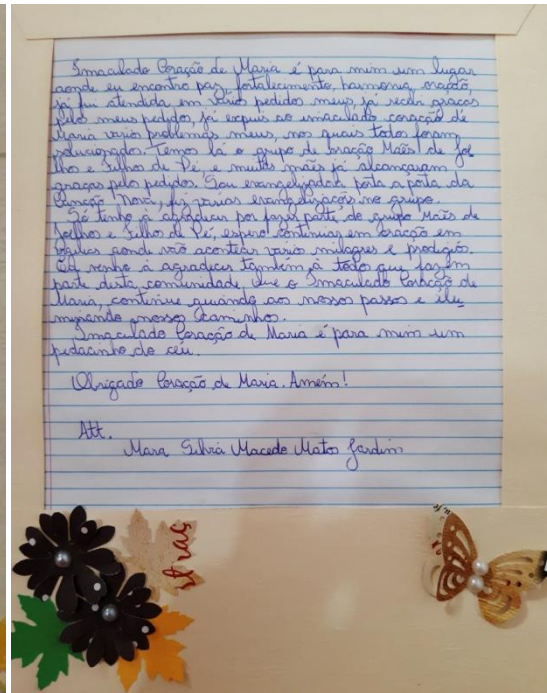 Imaculado Coração de Maria é para mim um lugar
aonde eu encontro paz, fortalecimento, harmonia, oração,
já fui atendida em vários pedidos meus, já recebi graças
pelos meus pedidos, já expus ao imaculado coração de
Maria vario problemas meus, nos quais todos foram
solucionados. Temos lá o grupo de oração Mães de joe
lhos e Filhos de Pé, e muitas mães já alcançaram
graças pelo pedidos. Sou evangelizadora porta a porta da
Canção Nova, fiz varias evangelizações no grupo.
Só tenho á agradecer por fazer parte do grupo Mães de
Joelhos e Filho de Pé, espero continuar em oração em
aonde vão acontecer vario milagres e prodígio.
Eu venho á agradecer também á todo que fazem
parte desta comunidade, que o Imaculado Coração de
Maria, continue guiando ao nossos passos e ilu
minando nosso caminhos.
Imaculado Coração de Maria é para mim um
pedacinho do céu.
Obrigado Coração de Maria. Amém!
Att.
Mara Silvia Macedo Matos Jardim